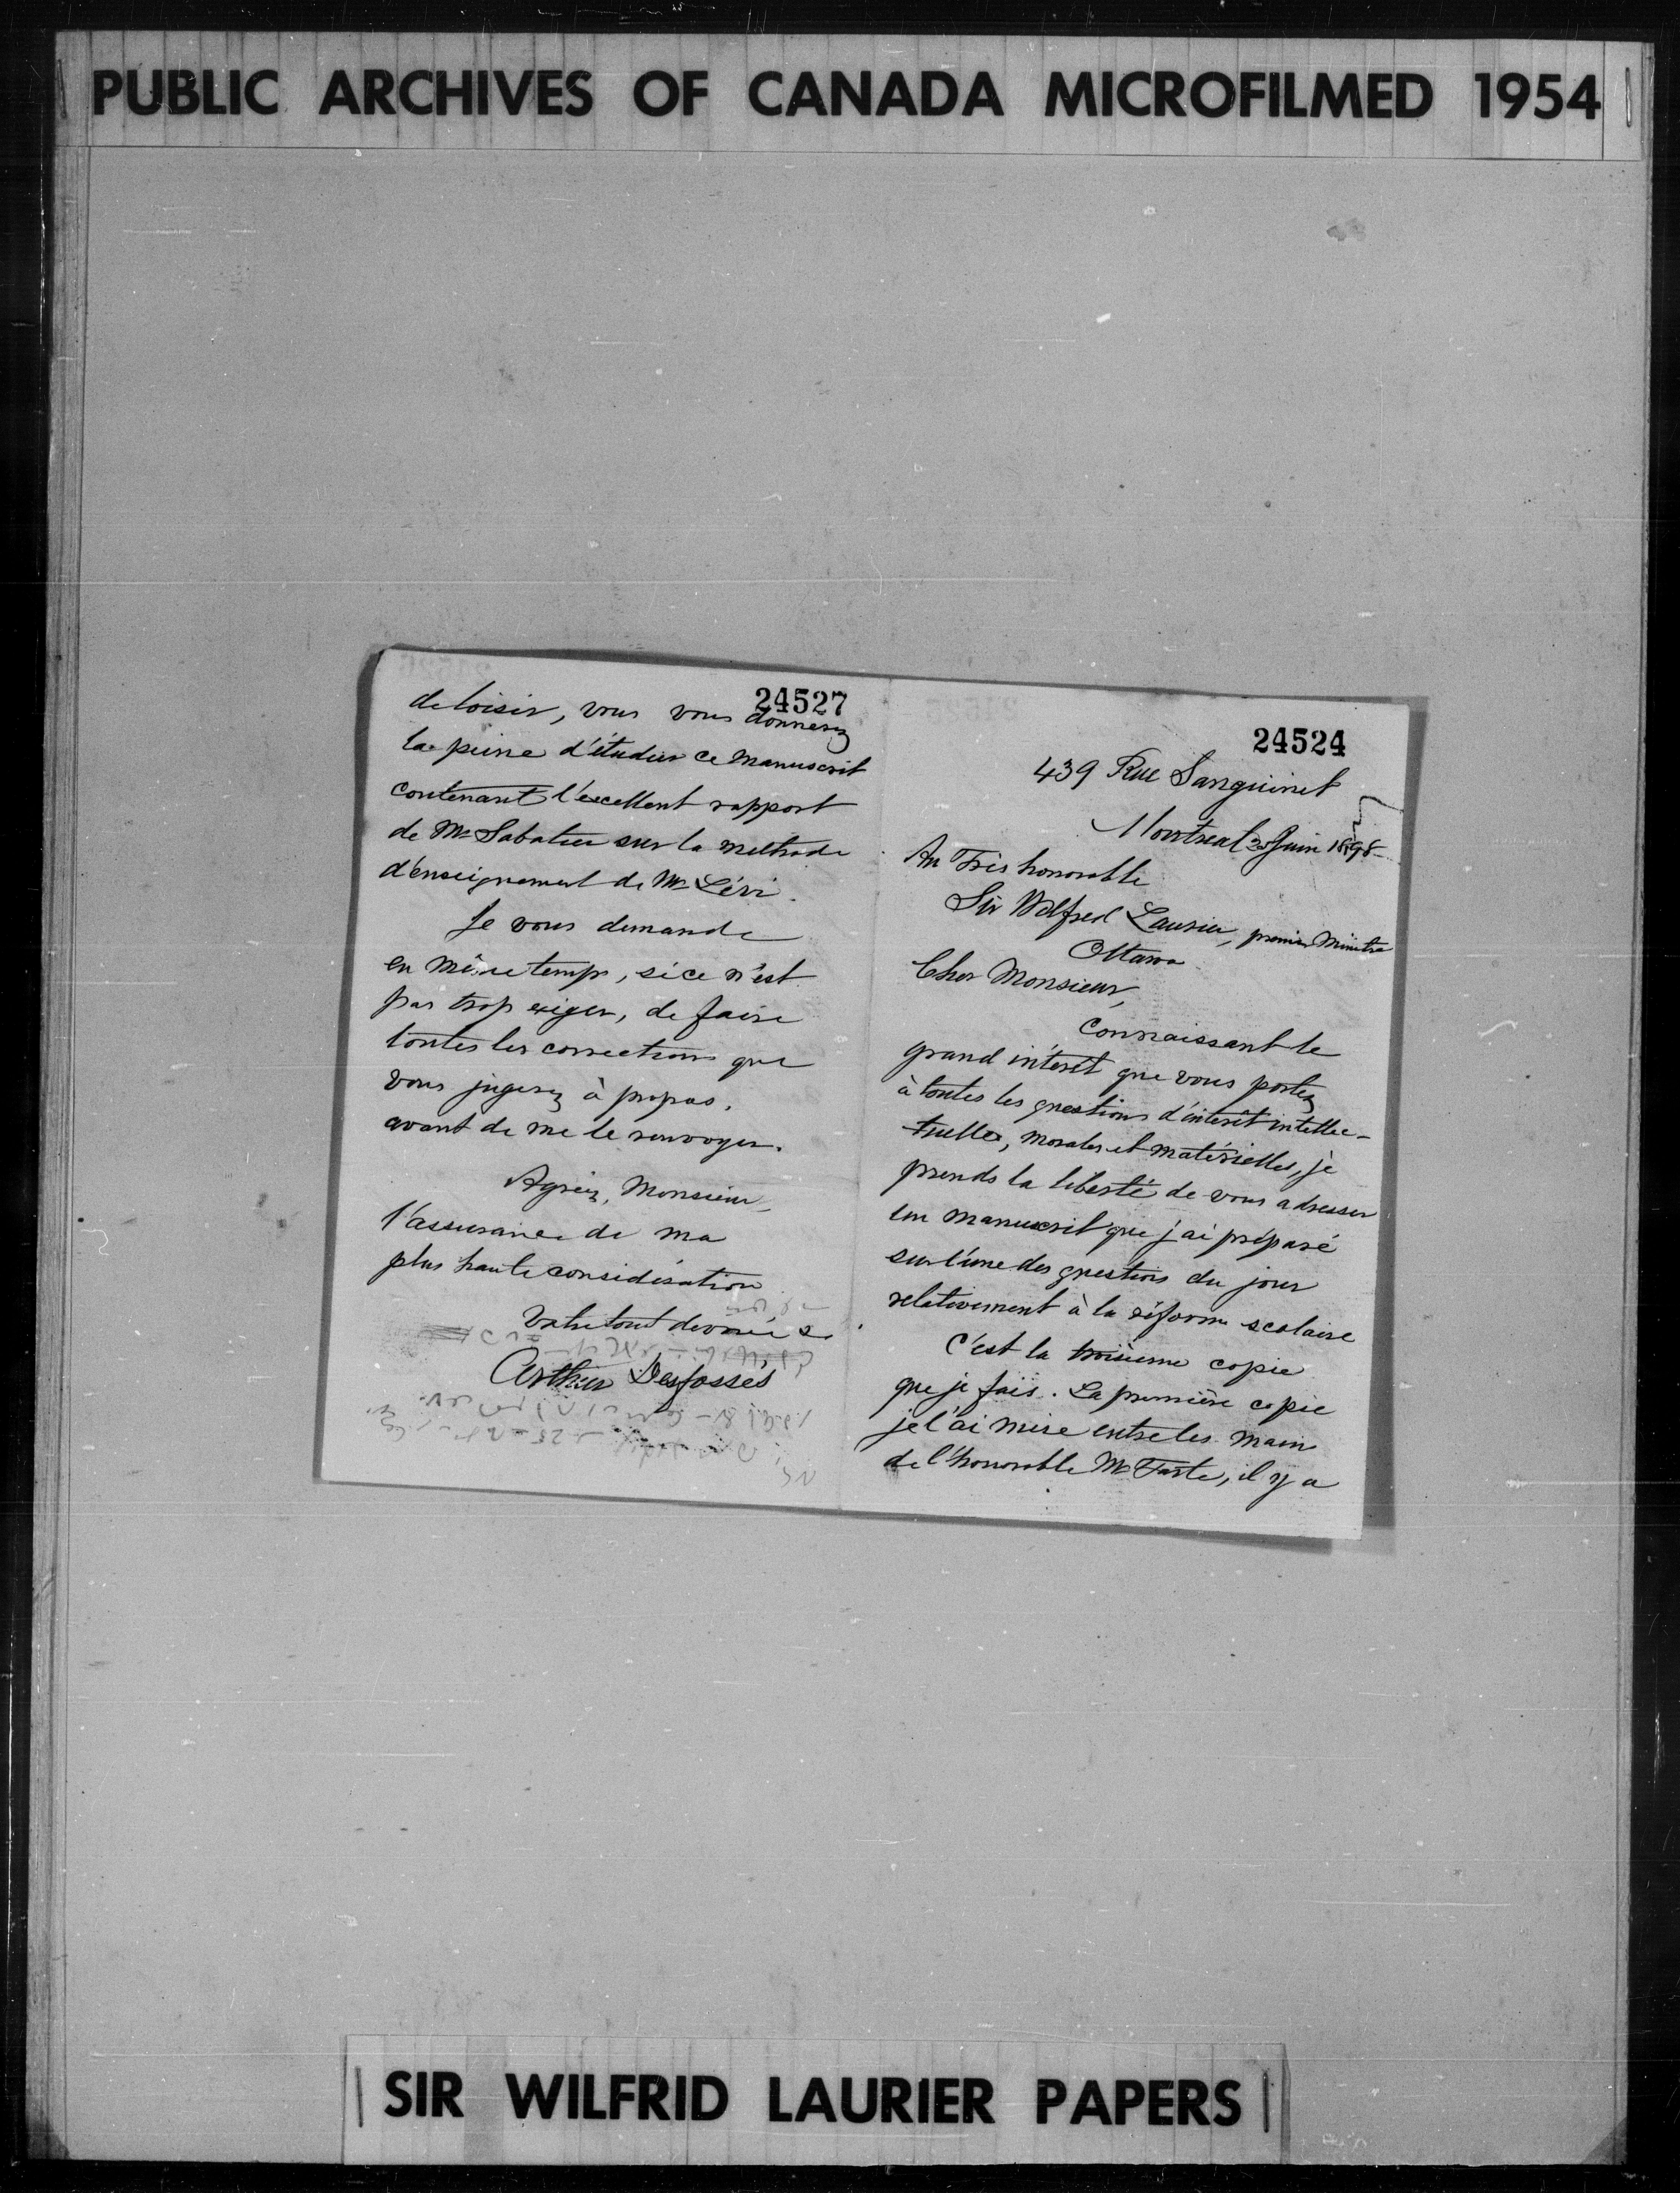 PUBLIC ARCHIVES OF CANADA MICROFILMED 1954
24527
de loisir, vous vous donnerez
la peine d'étudier ce manuscrit
contenant l'excellent rapport
de Mr Sabatier sur la méthode
d'enseignement de Mr Lévi.
Je vous demande
en même temps, si ce n'est
pas trop exiger, de faire
toutes les corrections que
vous jugerez à propos,
avant de me le renvoyer.
Agréez, Monsieur,
l'assurance de ma
plus haute considération
Votre tout dévoué
Arthur Desfossés
24524
439 Rue Sanguinet
Montreal Juin 1898
Au Très honorable
Sir Wilfred Laurier, premier Ministre
Ottawa
Cher Monsieur,
Connaissant le
grand intérêt que vous portez
à toutes les questions d'intérêt intellec-
tuelles, morales et matérielles, je
prends la liberté de vous adresser
un manuscrit que j'ai préparé
sur l'une des questions du jour
relativement à la réforme scolaire
C'est la troisième copie
que je fais. La première copie
je l'ai mise entre les main
de l'honorable Mr Tarte, il y a
SIR WILFRID LAURIER PAPERS